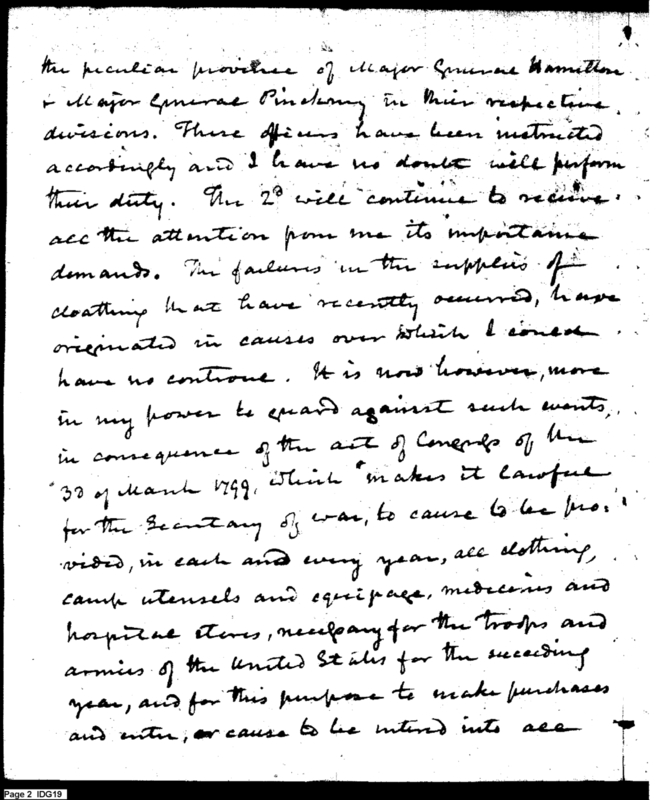 the peculiar province of Major General Hamilton
& Major General Pinckney in their respective
divisions. These officers have been instructed
accordingly and I have no doubt will perform
their duty. The 2d will continue to receive
all the attention from me its importance
demands. The failures in the supplies of
cloathing that have recently occurred, have
originated in causes over which I could
have no controul. It is now however, more
in my power to guard against such events,
in consequence of the act of Congress of the
3d of March 1799, which "makes it lawful
for the Secretary of war, to cause to be pro-
vided, in each and every year, all clothing,
camp utensels and equipage, medicines and
hospital stores, necessary for the troops and
armies of the United States for the succeeding
year, and for this purpose to make purchases
and enter, or cause to be entered into all
Page 2 IDG19